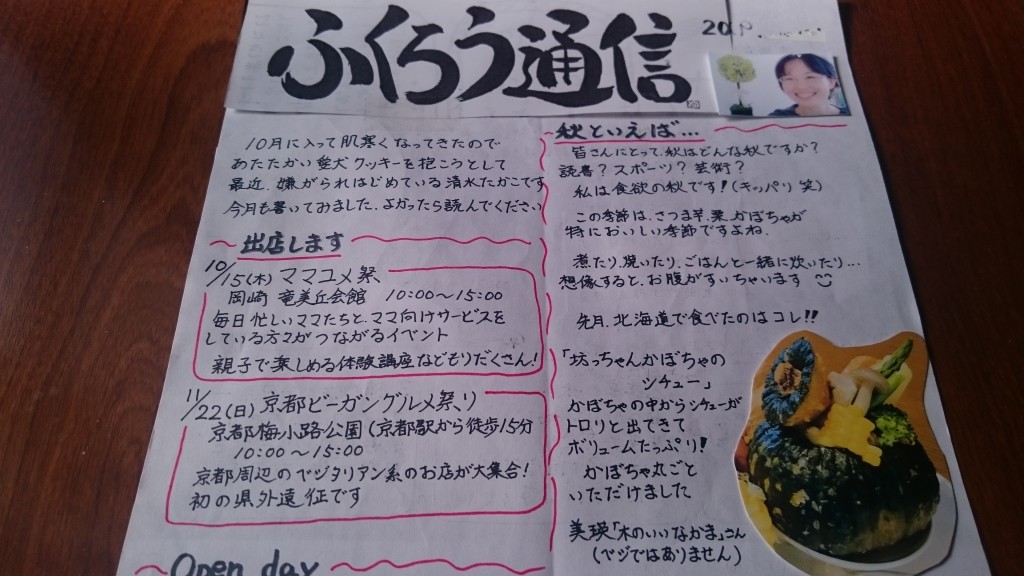 ふくろう通信
10月に入って肌寒くなってきたので
あたたかい愛犬クッキーを抱こうとして
最近、嫌がられはじめている清水たかこです
今月も書いてみました、よかったら読んでください
出店します
10/15(木) ママユメ祭
岡崎 竜美丘会館 10:00〜15:00
毎日忙しいママたちと、ママ向けサービスを
している方々がつながるイベント
親子で楽しめる体験講座などもりだくさん!
11/22(日) 京都ビーガングルメ祭り
京都梅小路公園(京都駅から徒歩15分
10:00〜15:00
京都周辺のベジタリアン系のお店が大集合!
初の県外遠征です
Open day
秋といえば…
皆さんにとって、秋はどんな秋ですか?
読書? スポーツ? 芸術?
私は食欲の秋です!(キッパリ 笑)
この季節は、さつま芋、栗、かぼちゃが
特においしい季節ですよね.
煮たり、焼いたり、ごはんと一緒に炊いたり…
想像すると、お腹がすいちゃいます
先月、北海道で食べたのはコレ!!
「坊っちゃんかぼちゃの
シチュー」
かぼちゃの中からシチューが
トロリと出てきて
ボリュームたっぷり!
かぼちゃ丸ごと
いただけました
美瑛「木のいいなかま」さん
(ベジではありません)